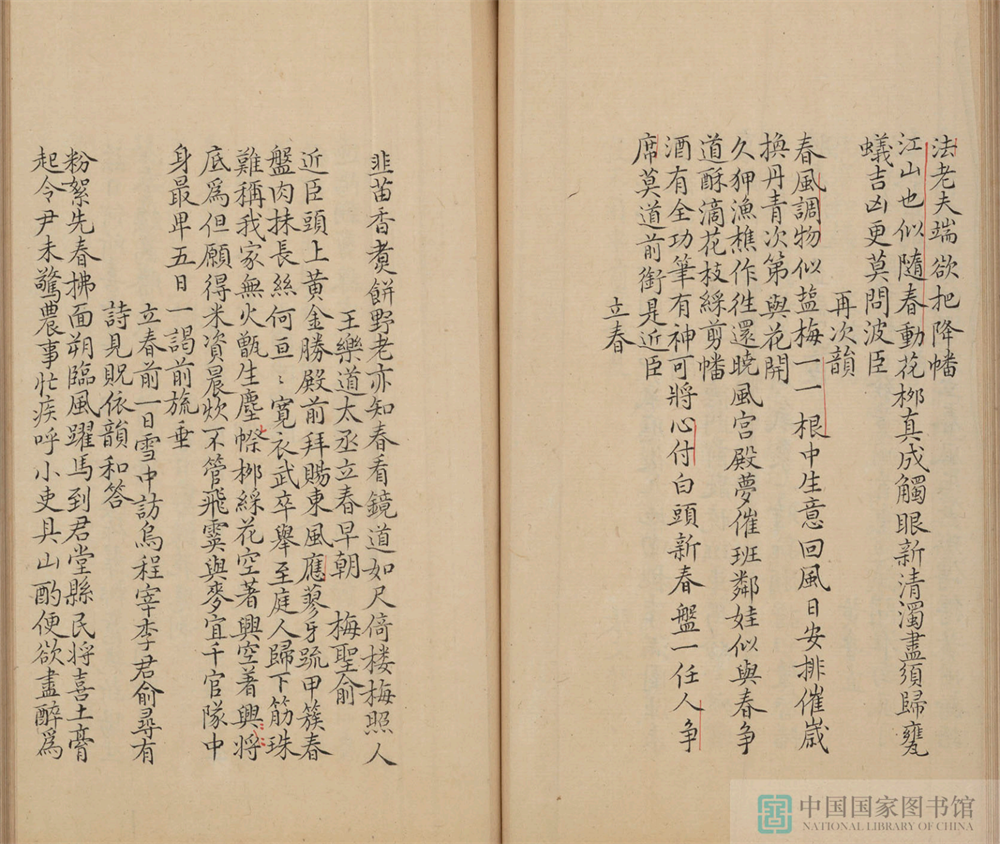 法老夫端欲杷降幡
江山也似隨春動花栁真成觸眼新清濁盡須歸甕
蟻吉凶更莫問波臣
再次韻
春風調物似塩梅一一根中生意回風日安排催歲
換丹青次第與花開
久狎漁樵作徃還曉風宮殿夢催班鄰娃似與春争
道酥滴花枝綵剪幡
酒有全功筆有神可將心付白頭新春盤一任人争
席莫道前銜是近臣
立春
韭苗香煑餅野老亦知春看鏡道如尺倚楼梅照人
王樂道太丞立春早朝 梅聖俞
近臣頭上黄金勝殿前拜賜東風應蓼牙蔬甲簇春
盤肉抹長絲何亘〻寬衣武卒舉至庭人歸下筋珠
難稱我家無火甑生塵幡栁綵花空著興空著興将
底為但願得米資晨炊不管飛霙與麥宜千官隊中
身最卑五日一謁前旒垂
立春前一日雪中訪烏程宰李君俞尋有
詩見貺依韻和答
粉絮先春拂面朔臨風躍馬到君堂縣民将喜土膏
起令尹未驚農事忙疾呼小吏具山酌便欲盡醉為
中国国家图书馆
NATIONAL LIBRARY OF CHINA